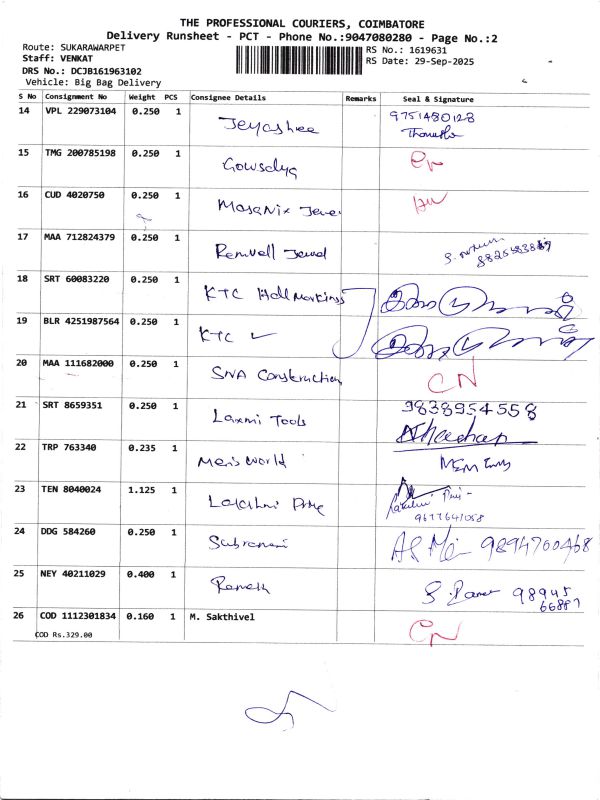 THE PROFESSIONAL COURIERS, COIMBATORE
Delivery Runsheet - PCT - Phone No.:9047080280 - Page No.:2
Route: SUKARAWARPET
RS No.: 1619631
Staff: VENKAT
RS Date: 29-Sep-2025
DRS No.: DCJB161963102
Vehicle: Big Bag Delivery
S No Consignment No Weight PCS Consignee Details Remarks Seal & Signature
14 VPL 229073104 0.250 1 Jeyashree 9751480128
15 TMG 200785198 0.250 1 Gowsalya
16 CUD 4020750 0.250 1
17 MAA 712824379 0.250 1
18 SRT 60083220 0.250 1 KTC Hall Markings
19 BLR 4251987564 0.250 1 KTC
20 MAA 111682000 0.250 1 SNA Construction CN
21 SRT 8659351 0.250 1 Laxmi Tools 9838954558
22 TRP 763340 0.235 1 Men's World
23 TEN 8040024 1.125 1 Lakshmi
9677641058
24 DDG 584260 0.250 1 9894700468
25 NEY 40211029 0.400 1 Ramesh 98945
66887
26 COD 1112301834 0.160 1 M. Sakthivel CN
COD Rs.329.00